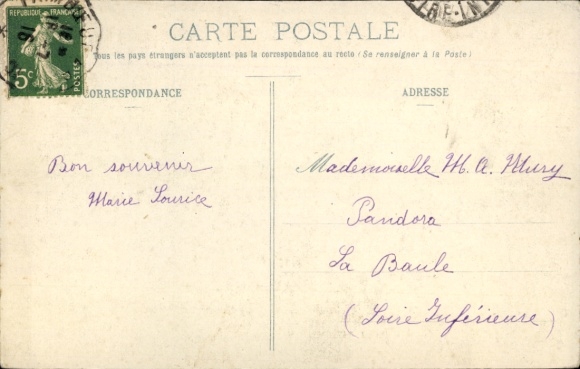 REPUBLIQUE FRANÇAISE
5c
POSTES
CARTE POSTALE
Tous les pays étrangers n'acceptent pas la correspondance au recto (Se renseigner à la Poste)
CORRESPONDANCE
ADRESSE
Bon souvenir
Marie Lourice
Mademoiselle M. A. Mury
Pandora
La Baule
(Loire Inférieure)